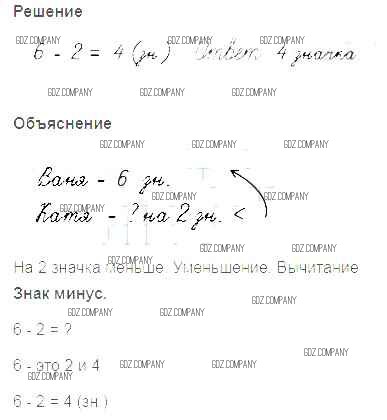 Решение
GDZ.COMPANY GDZ.COMPANY GDZ.COMPANY GDZ.COMPANY
6 - 2 = 4 (зн.) Ответ 4 значка
GDZ.COMPANY GDZ.COMPANY GDZ.COMPANY
Объяснение
GDZ.COMPANY GDZ.COMPANY GDZ.COMPANY
Ваня - 6 зн.
GDZ.COMPANY GDZ.COMPANY GDZ.COMPANY
Катя - ? на 2 зн. <
GDZ.COMPANY GDZ.COMPANY GDZ.COMPANY
На 2 значка меньше. Уменьшение. Вычитание
Знак минус.
GDZ.COMPANY GDZ.COMPANY GDZ.COMPANY
6 - 2 = ?
GDZ.COMPANY
6 - это 2 и 4
GDZ.COMPANY GDZ.COMPANY GDZ.COMPANY
6 - 2 = 4 (зн.)